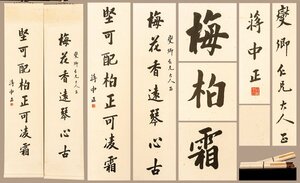 燮卿仁兄大人正
梅花香遠琴心古
堅可配柏正可凌霜
蔣中正
堅可配柏正可凌霜
蔣中正
燮卿仁兄大人正
梅花香遠琴心古
梅
柏
霜
蔣中正
燮卿仁兄大人正